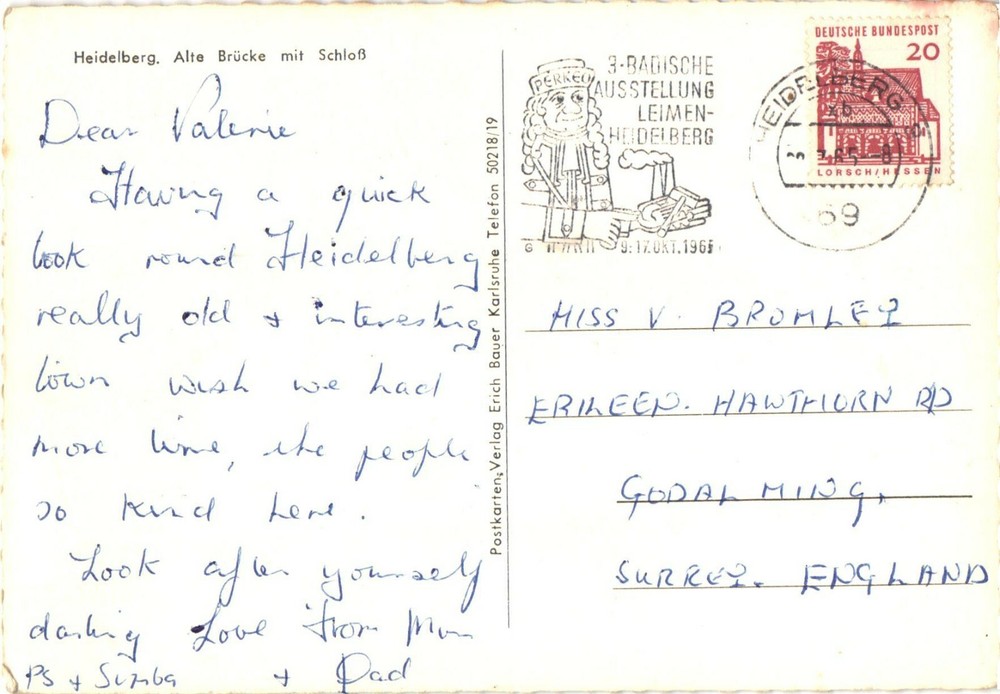 Heidelberg. Alte Brücke mit Schloß
Dear Valerie
Having a quick
look round Heidelberg
really old + interesting
town wish we had
more time, the people
so kind here.
Look after yourself
darling Love from Mum
+ Dad
PS + Simba
Postkarten-Verlag Erich Bauer Karlsruhe Telefon 50218/19
PERKEO
3. BADISCHE
AUSSTELLUNG
LEIMEN-
HEIDELBERG
9.-17.OKT.1965
DEUTSCHE BUNDESPOST
20
LORSCH/HESSEN
HEIDELBERG
69
MISS V. BROMLEY
ERILEEN. HAWTHORN RD
GODALMING,
SURREY. ENGLAND